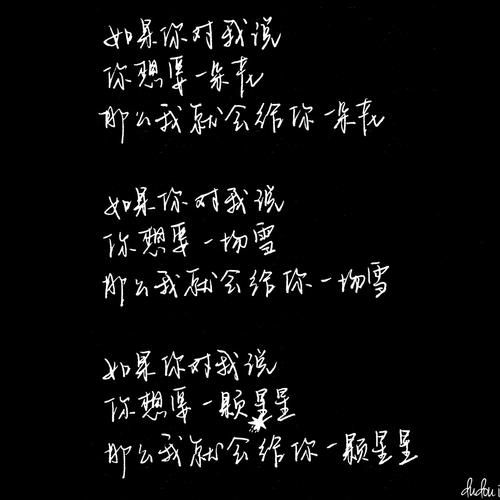 如果你对我说
你想要一朵花
那么我就会给你一朵花
如果你对我说
你想要一场雪
那么我就会给你一场雪
如果你对我说
你想要一颗星星
那么我就会给你一颗星星